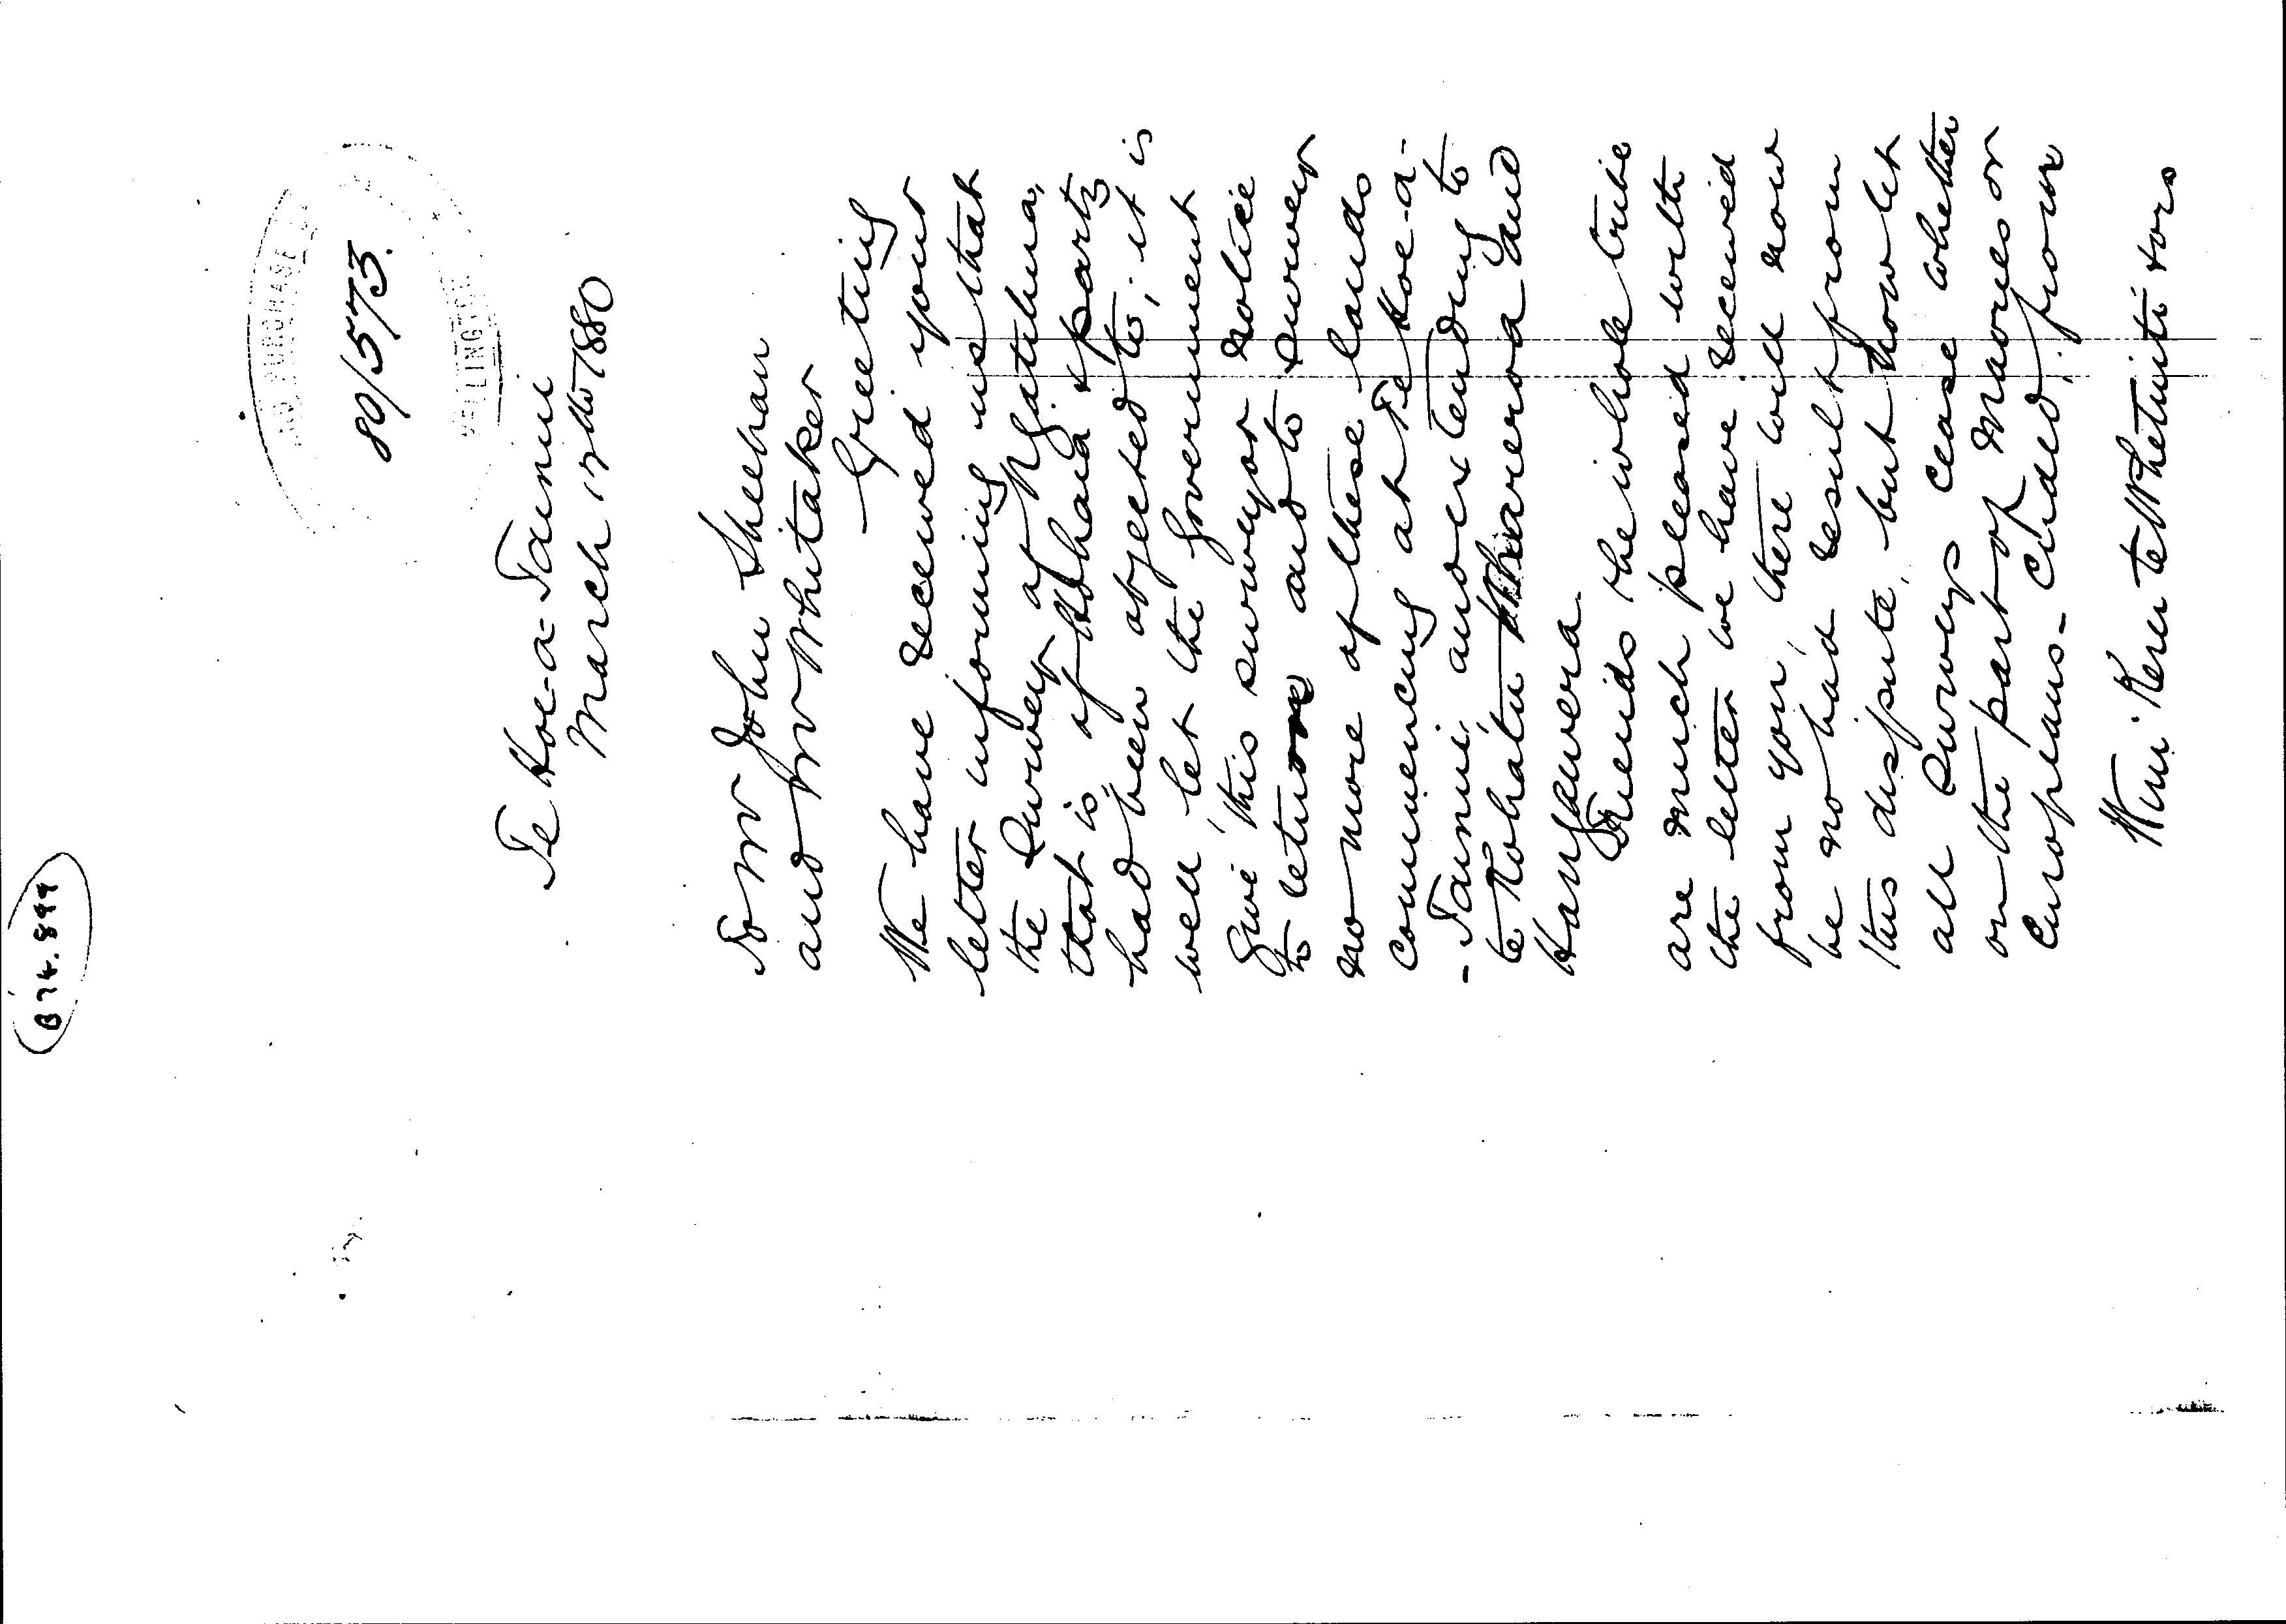 B 74.899
80/573.
Te Hoe-a-Tainui
March 17th 1880
To Mr John Sheehan
and Mr Whitaker
Greeting
We have received your
letter informing us that
the Survey of Ngatihura,
that is of Hohaia & party
had been objected to; it is
well, let the Government
give this surveyor notice
to return and to survey
no more of these lands
commencing at Te Hoe-a-
-Tainui, and extending to
te Kohatu Whareroa and
Hangawera.
Friends the whole tribe
are much pleased with
the letter we have received
from you, there will now
be no bad result from
this dispute, but now let
all surveys cease whether
on the part of Maories or
Europeans - Ended, from
Wini Kerei te Whetuiti & ors